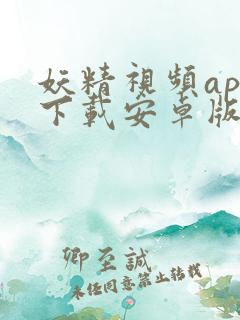 妖精視頻ap
下載安卓版
卿至誠
未经同意禁止转载